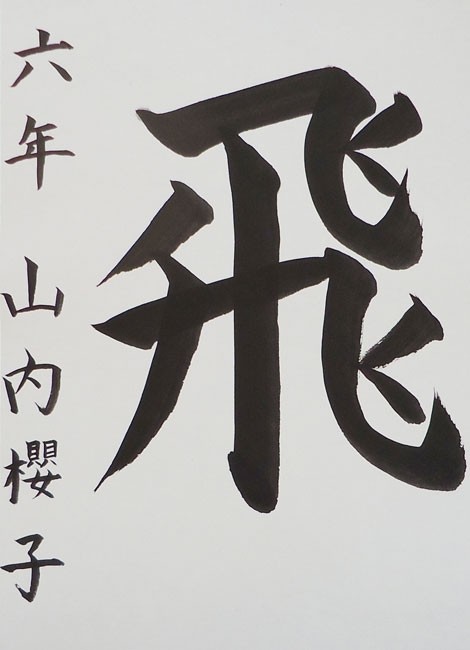 飛
六年 山内櫻子